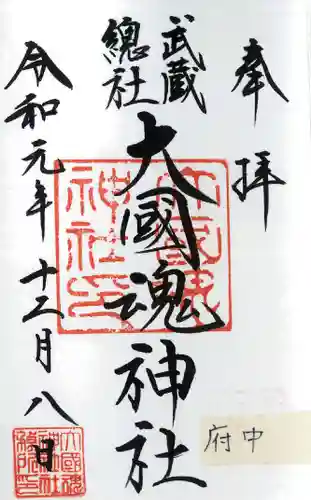 奉拝
武蔵
總社
大國魂神社
令和元年十二月八日
大國魂
神社印
府中